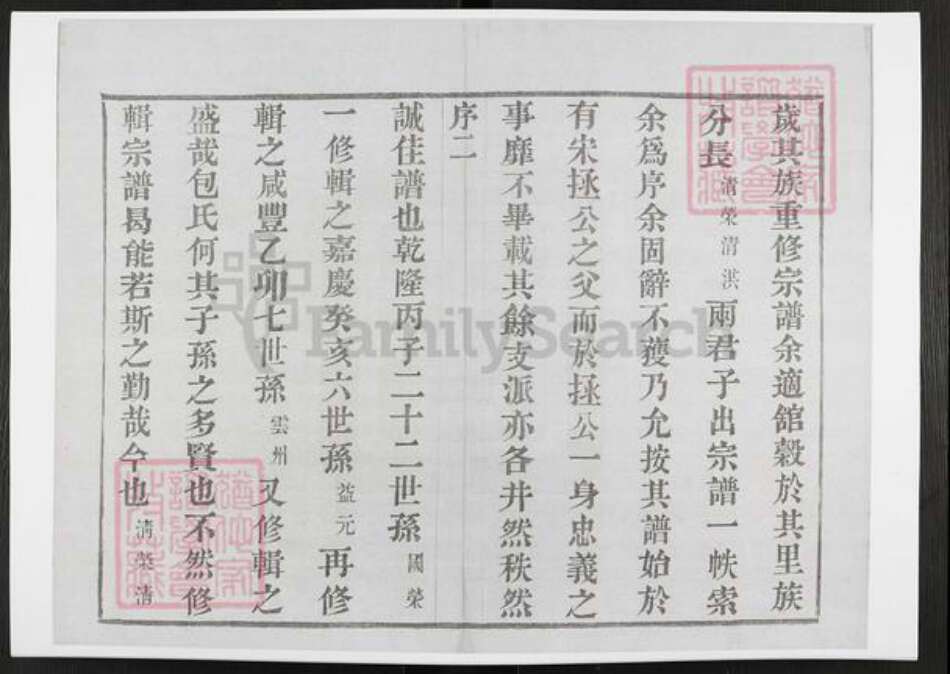 歲其族重修宗譜余適舘穀於其里族
分長清榮清洪兩君子出宗譜一帙索
余爲序余固辭不獲乃允按其譜始於
有宋拯公之父而於拯公一身忠義之
事靡不畢載其餘支派亦各井然秩然
序二
誠佳譜也乾隆丙子二十二世孫國榮
一修輯之嘉慶癸亥六世孫益元再修
輯之咸豐乙卯七世孫雲州又修輯之
盛哉包氏何其子孫之多賢也不然修
輯宗譜曷能若斯之勤哉今也清榮清
FamilySearch